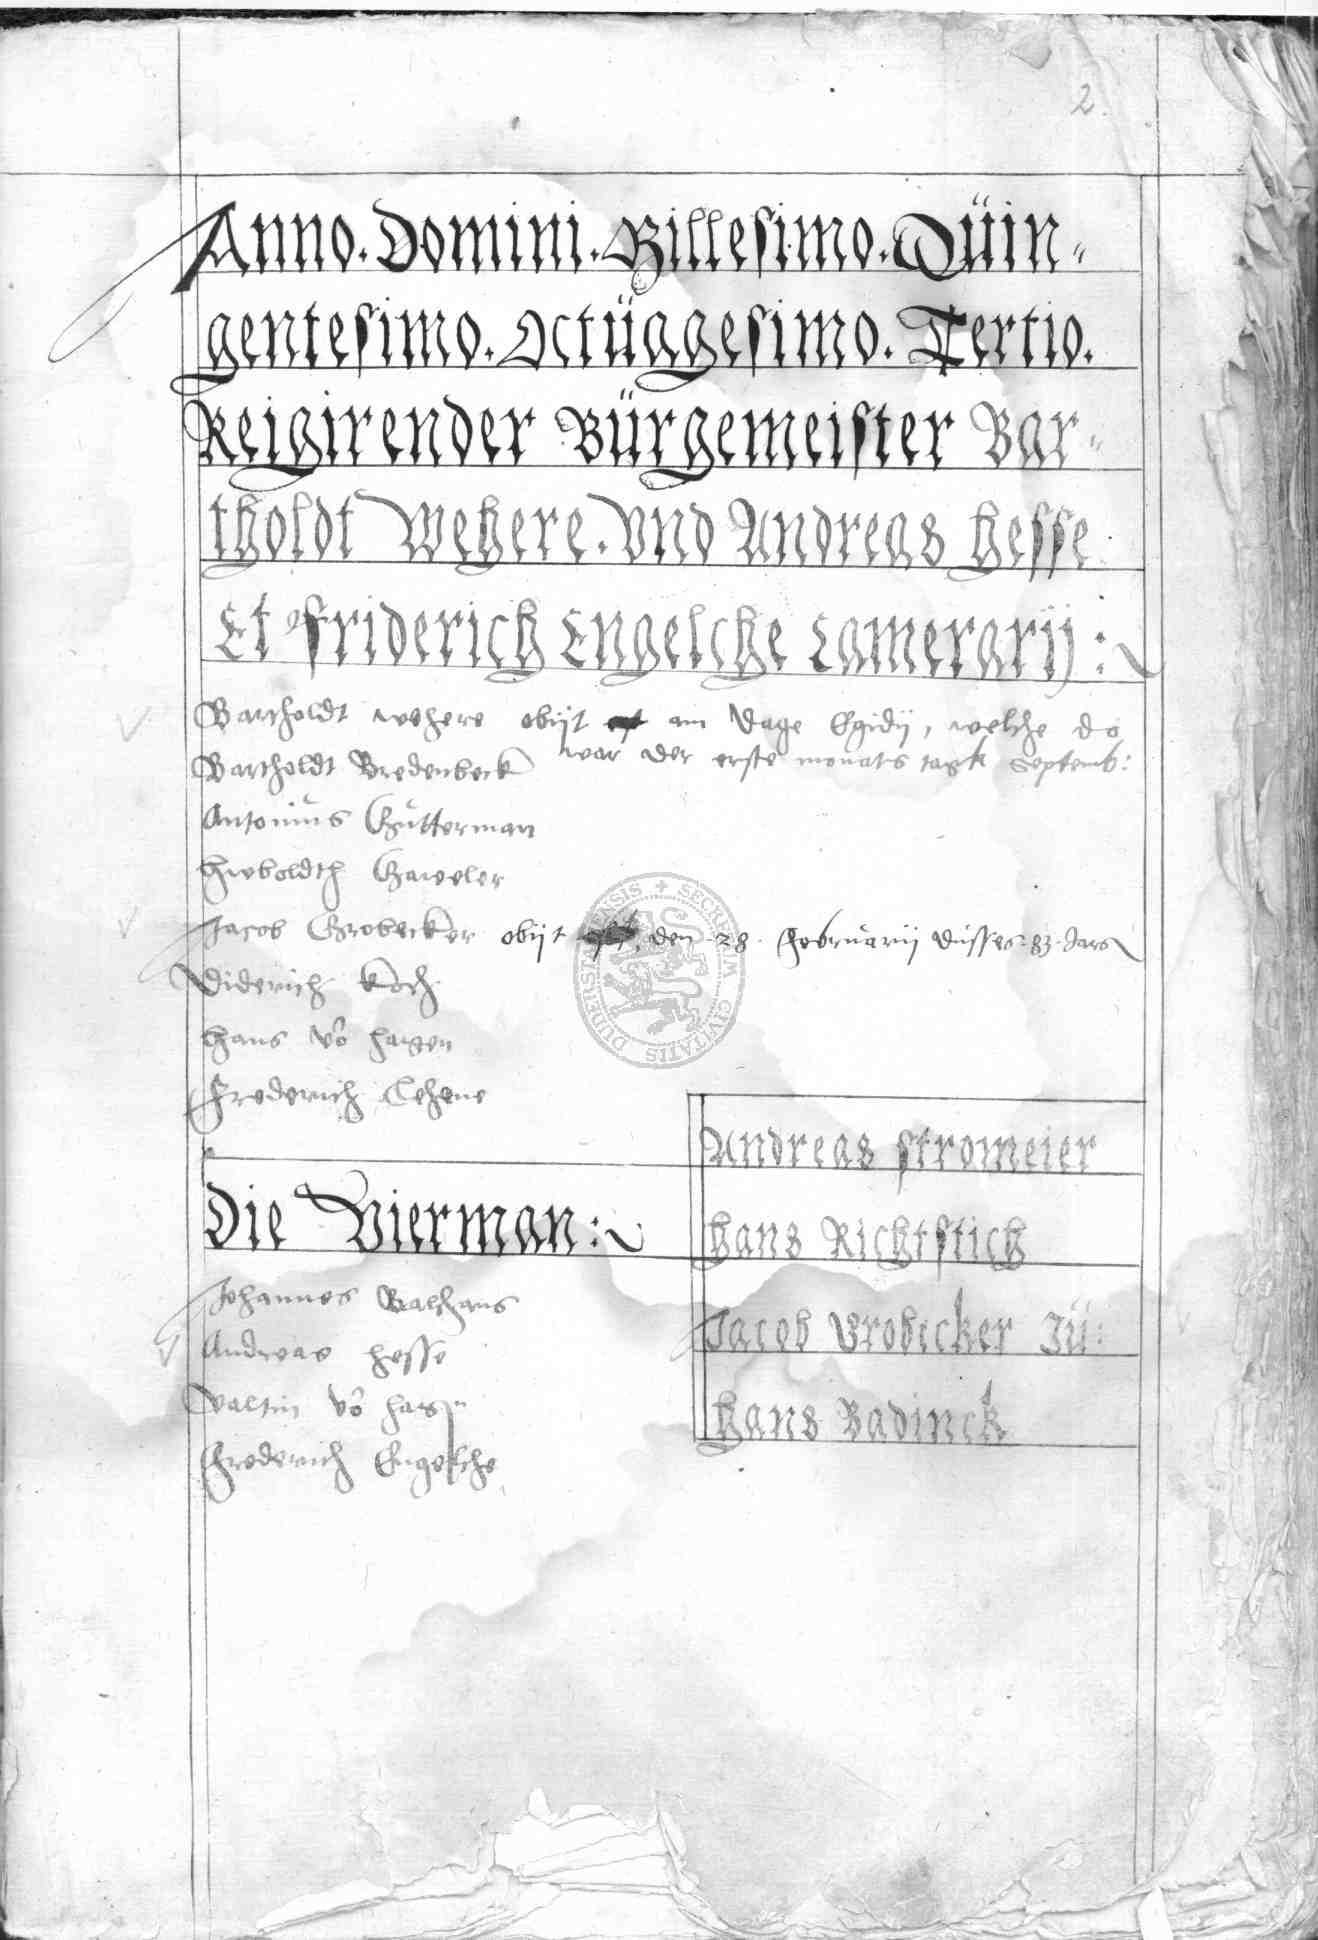 2.
Anno. Domini. Millesimo. Qüin-
gentesimo. Octüagesimo. Tertio.
Reigirender Bürgemeister Bar-
tholdt Wehere. Vnd Andreas Hesse
Et Friderich Engelche Camerarij :
Bartholdt wehere obijt am Dage Egidij, welche do
war der erste monats tagk Septemb:
Bartholdt Bredenbeck
Antonius Gütterman
Hwboldth Gaweler
Jacob Grobecker obijt den 28. Februarij düsses 83. Jars
Diderich Koch
Hans vo hagen
Frederich Lehene
Die Vierman :
Johannes Balthans
Andreas Hesse
Valtin vo hagen
Frederich Engelche
Andreas Stromeier
Hans Richtstich
Jacob Grobecker Jü:
Hans Badinck
SECRETUM CIVITATIS DUDERSTADENSIS